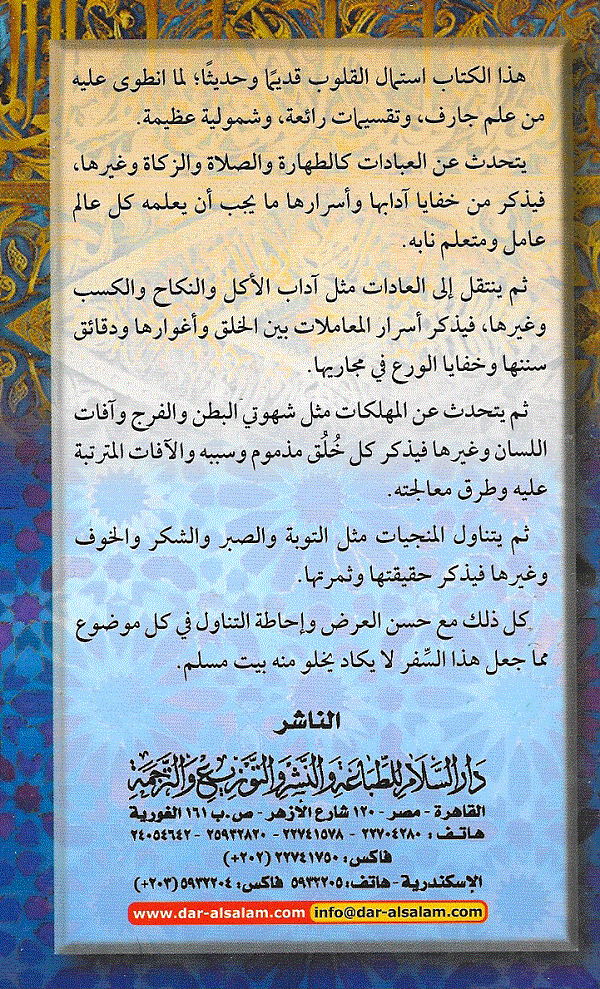 هذا الكتاب استمال القلوب قديمًا وحديثًا؛ لما انطوى عليه
من علم جارف، وتقسيمات رائعة، وشمولية عظيمة.
يتحدث عن العبادات كالطهارة والصلاة والزكاة وغيرها،
فيذكر من خفايا آدابها وأسرارها ما يجب أن يعلمه كل عالم
عامل ومتعلم نابه.
ثم ينتقل إلى العادات مثل آداب الأكل والنكاح والكسب
وغيرها، فيذكر أسرار المعاملات بين الخلق وأغوارها ودقائق
سننها وخفايا الورع في مجاريها.
ثم يتحدث عن المهلكات مثل شهوتي البطن والفرج وآفات
اللسان وغيرها فيذكر كل خُلُق مذموم وسببه والآفات المترتبة
عليه وطرق معالجته.
ثم يتناول المنجيات مثل التوبة والصبر والشكر والخوف
وغيرها فيذكر حقيقتها وثمرتها.
كل ذلك مع حسن العرض وإحاطة التناول في كل موضوع
مما جعل هذا السِّفر لا يكاد يخلو منه بيت مسلم.
الناشر
دار السلام للطباعة والنشر والتوزيع والترجمة
القاهرة - مصر - ١٢٠ شارع الأزهر - ص.ب ١٦١ الغورية
هاتف: ٢٢٧٠٤٢٨٠ - ٢٢٧٤١٥٧٨ - ٢٥٩٣٢٨٢٠ - ٢٤٠٥٤٦٤٢
فاكس: ٢٢٧٤١٧٥٠ (٢٠٢+)
الإسكندرية - هاتف: ٥٩٣٢٢٠٥ فاكس: ٥٩٣٢٢٠٤ (٢٠٣+)
www.dar-alsalam.com info@dar-alsalam.com